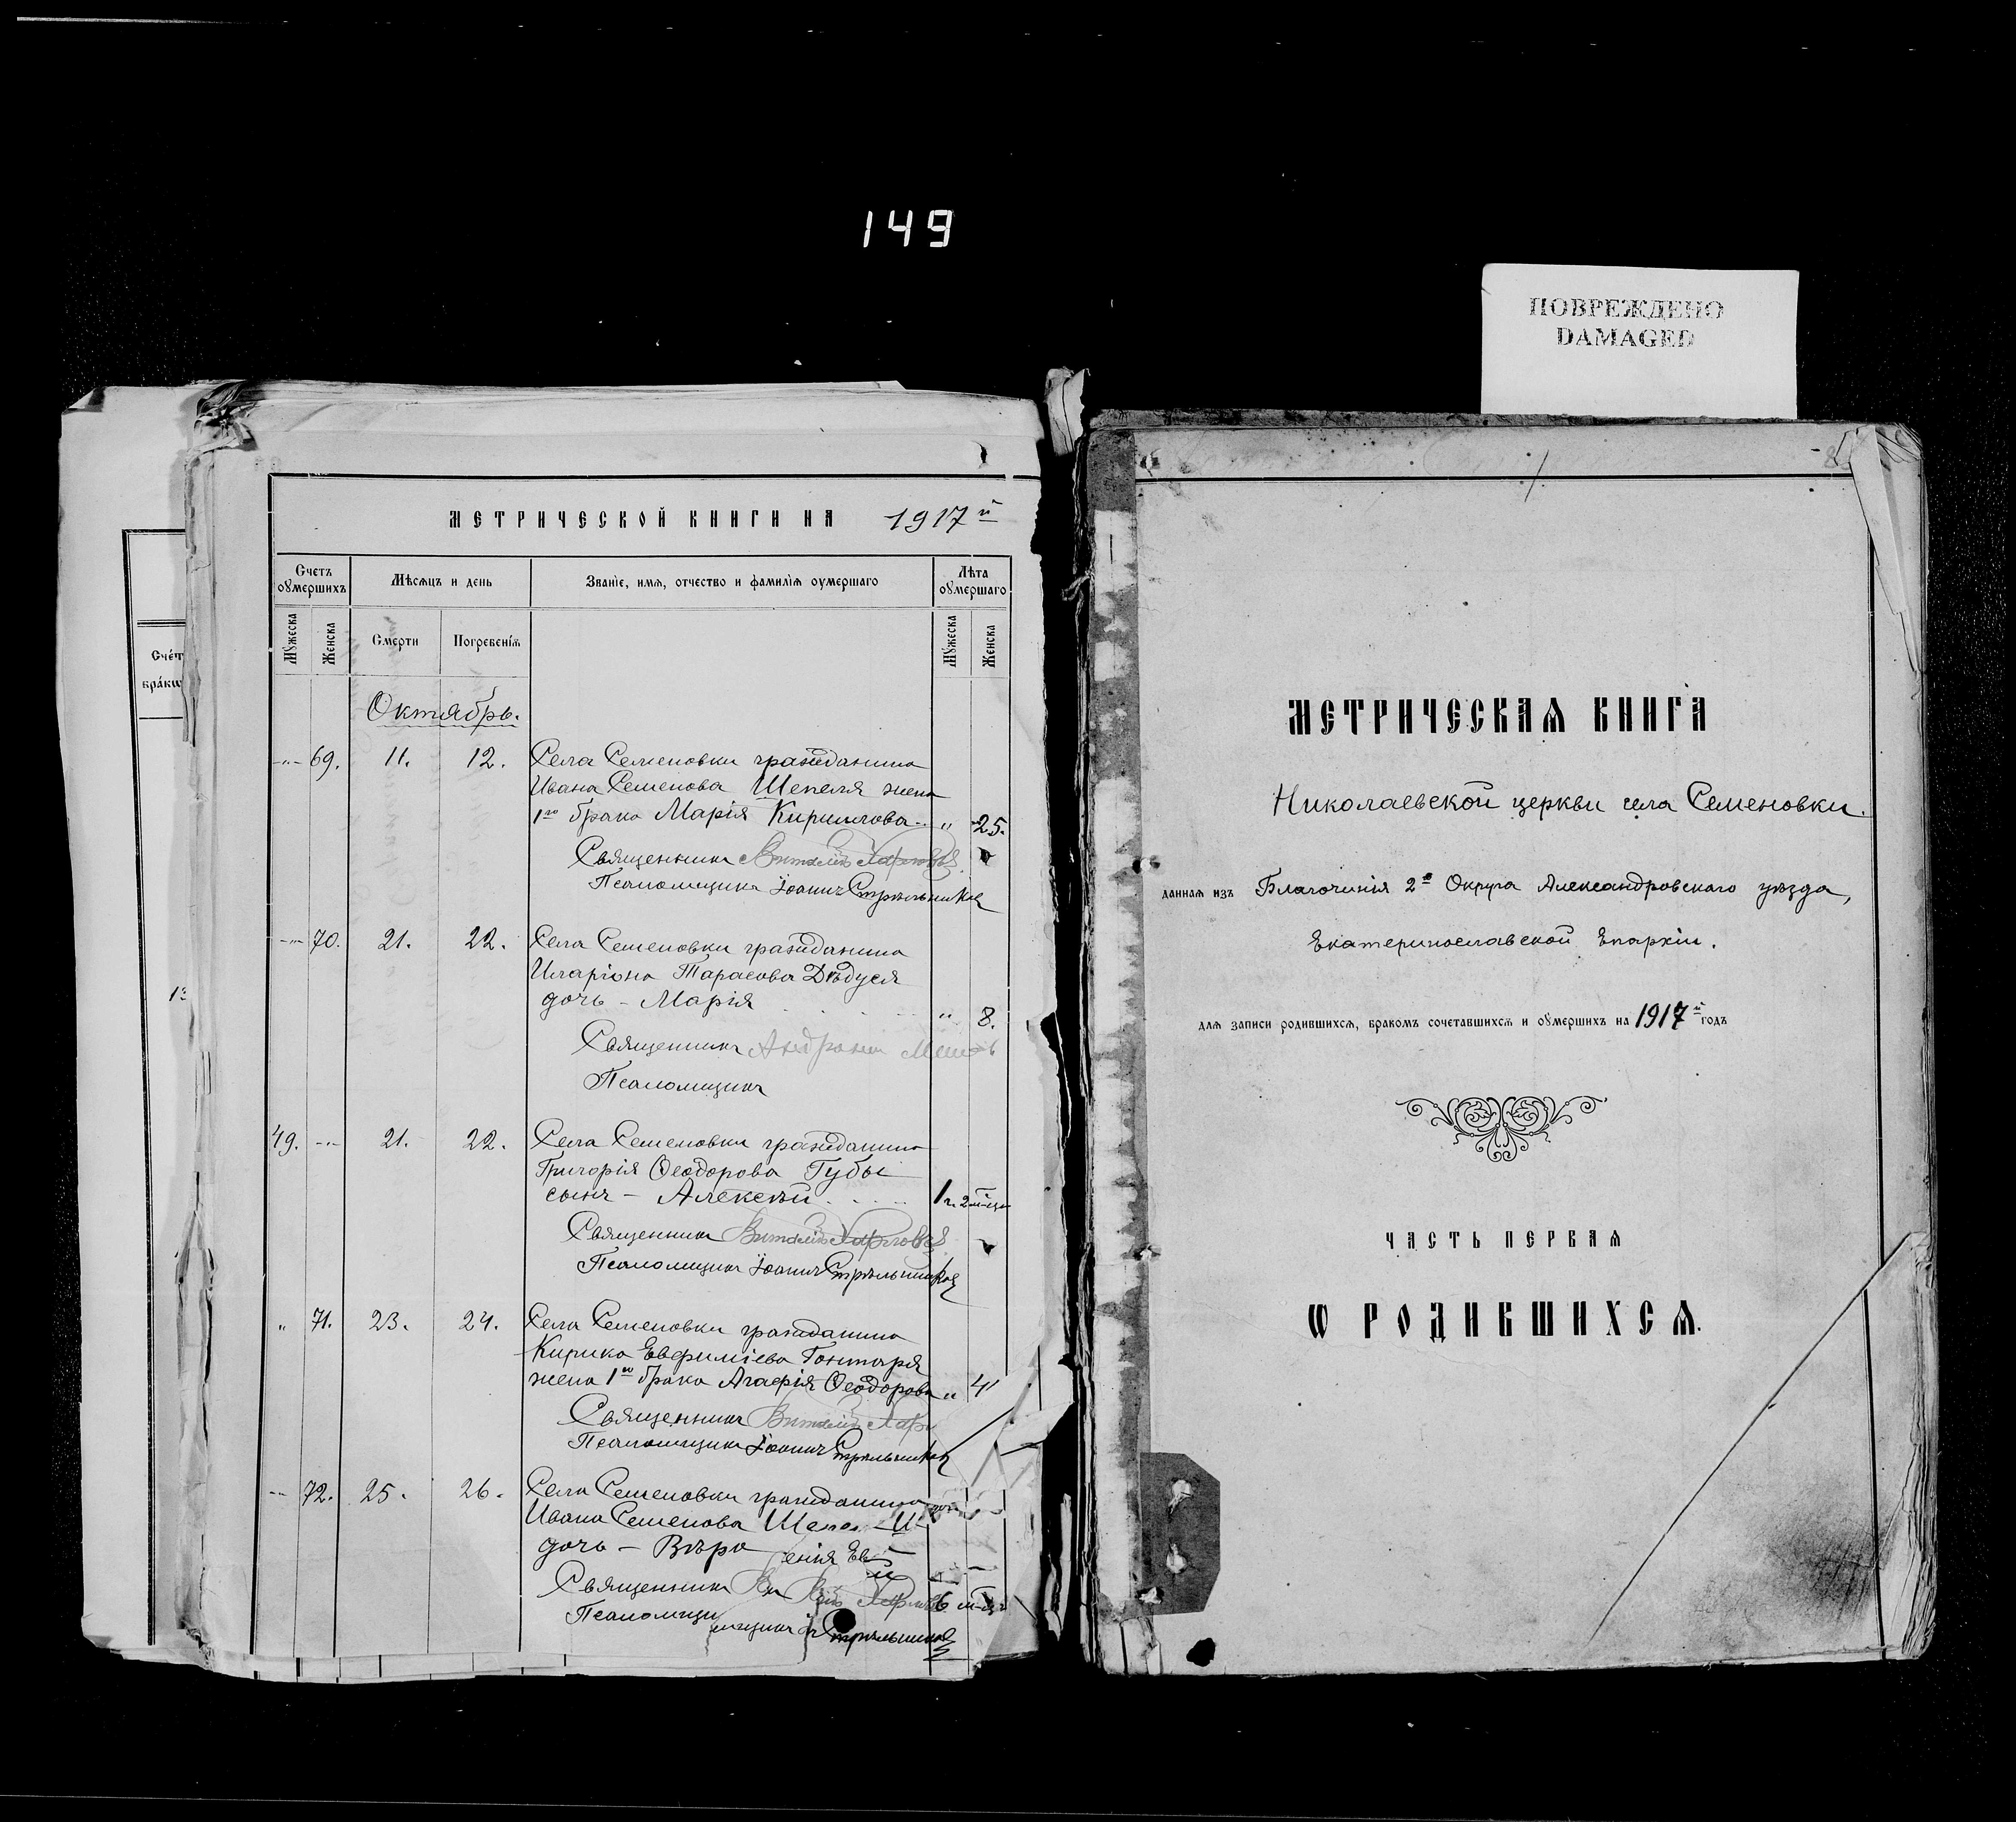 149
ПОВРЕЖДЕНО
DAMAGED
МЕТРИЧЕСКОЙ КНИГИ НА 1917й
Счетъ оумершихъ
Мѣсяцъ и день
Званіе, имя, отчество и фамилія оумершаго
Лѣта оумершаго
Мужеска
Женска
Смерти
Погребенія
Мужеска
Женска
Счет
брако
13
Октябрь.
-"- 69. 11. 12. Села Семеновки гражданина
Ивана Семенова Шепеля жена
1го брака Марія Кириллова - " 25.
Священникъ Виталій
Псаломщикъ Іоаннъ Стрѣльниковъ
-"- 70. 21. 22. Села Семеновки гражданина
Иларіона Тарасова Дѣдуся
дочь - Марія " 8.
Священникъ
Псаломщикъ
49. -"- 21. 22. Села Семеновки гражданина
Григорія Ѳеодорова Губы
сынъ - Алексѣй . . . . 1 г. 2 м-ца
Священникъ Виталій
Псаломщикъ Іоаннъ Стрѣльниковъ
" 71. 23. 24. Села Семеновки гражданина
Кирика Евфиміева Гонтаря
жена 1го брака Агафія Ѳеодорова " 41
Священникъ Виталій
Псаломщикъ Іоаннъ Стрѣльниковъ
-"- 72. 25. 26. Села Семеновки гражданина
Ивана Семенова
дочь - Вѣра
Священникъ 6 м-ц
Псаломщи
Стрѣльниковъ
МЕТРИЧЕСКАЯ КНИГА
Николаевской церкви села Семеновки.
данная изъ Благочинія 2го Округа Александровскаго уѣзда,
Екатеринославской Епархіи.
для записи родившихся, бракомъ сочетавшихся и оумершихъ на 1917й годъ
ЧАСТЬ ПЕРВАЯ
Ѡ РОДИВШИХСЯ.